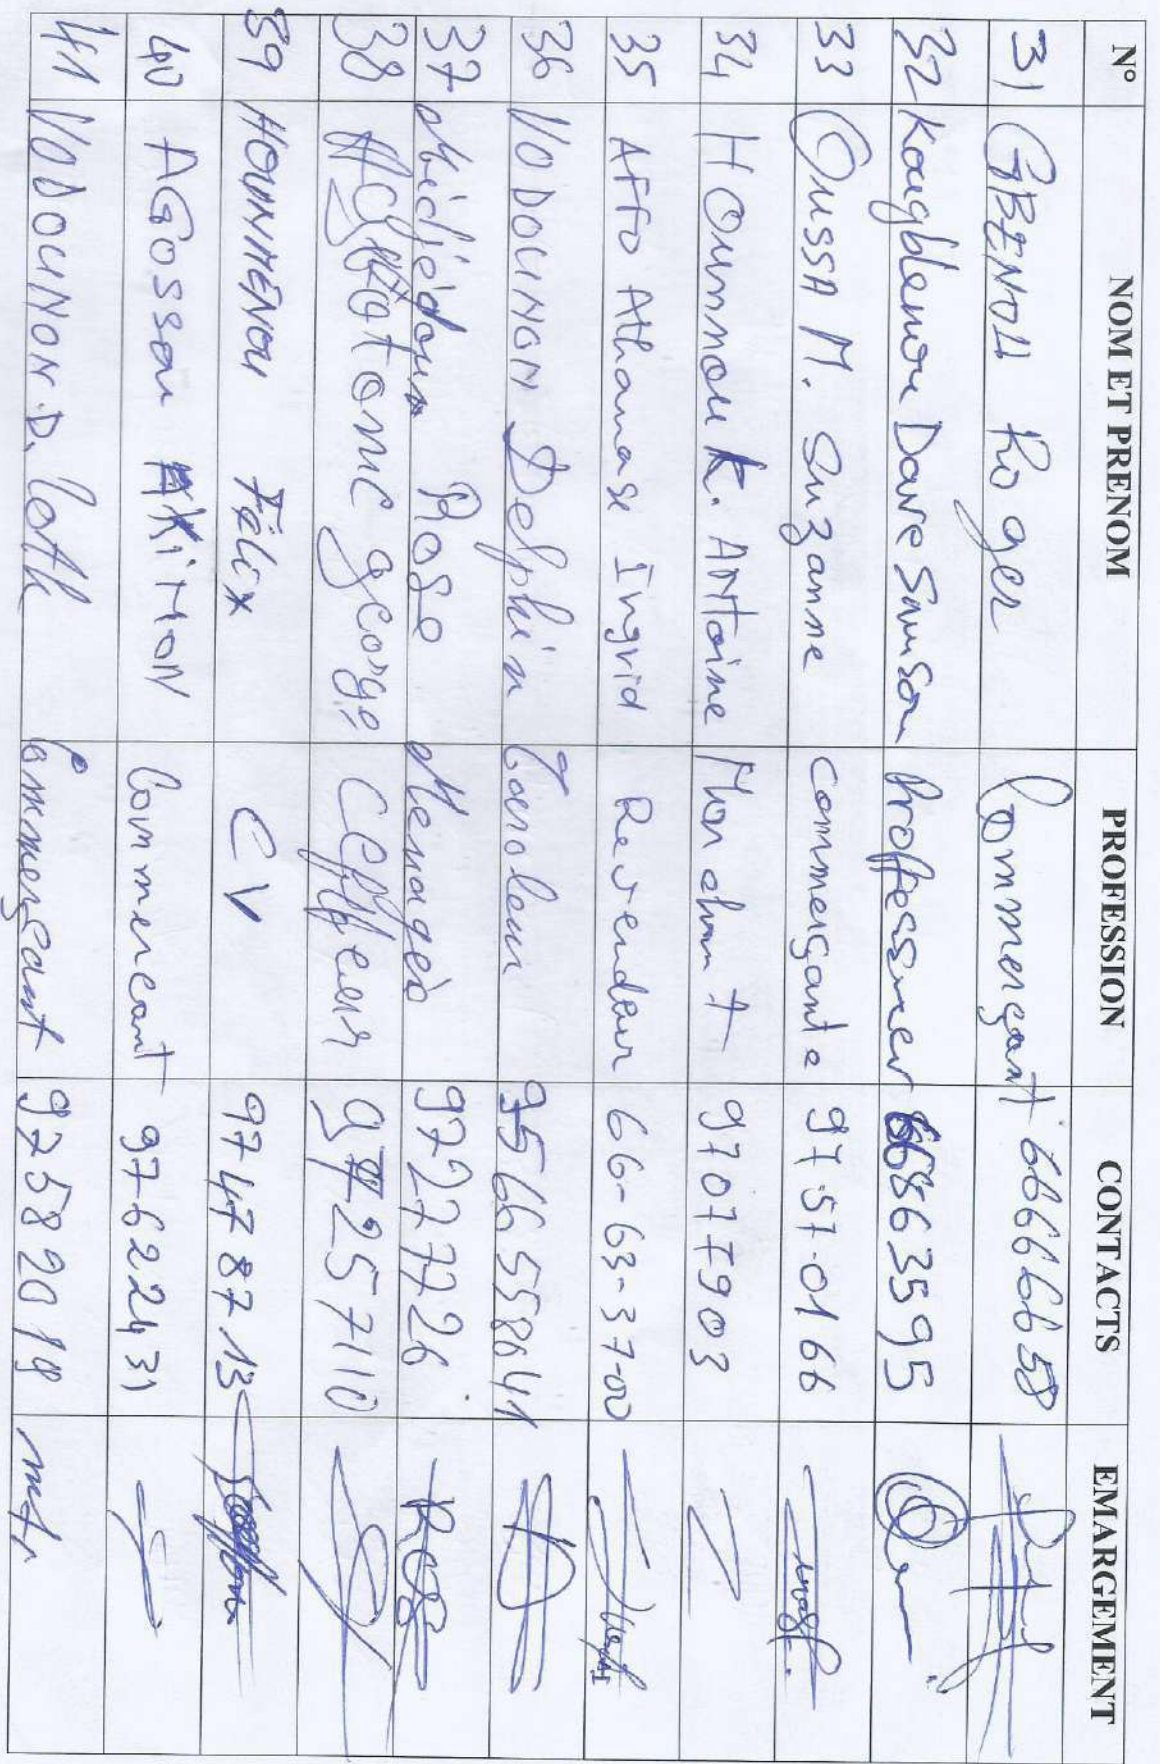 N° NOM ET PRENOM PROFESSION CONTACTS EMARGEMENT
31 GBENOU Roger Commerçant 66666658
32 Kougblenou Dave Samson Professeur 66863595
33 OussA M. Suzanne Commerçante 97-57-0166
34 HOunnou K. ANtoine Marchant 97077903
35 AFFO Athanase Ingrid Revendeur 66-63-37-00
36 VODOUNON Delphin 95665586 41
37 Médjèdoun Rose Menagèe 97277726
38 george Ceffeur 97257110
39 HOUNMENOU Félix CV 97478713
40 AGossou AKiMON Commercant 97622431
41 VODOUNON.D. Loth Commerçant 97582019